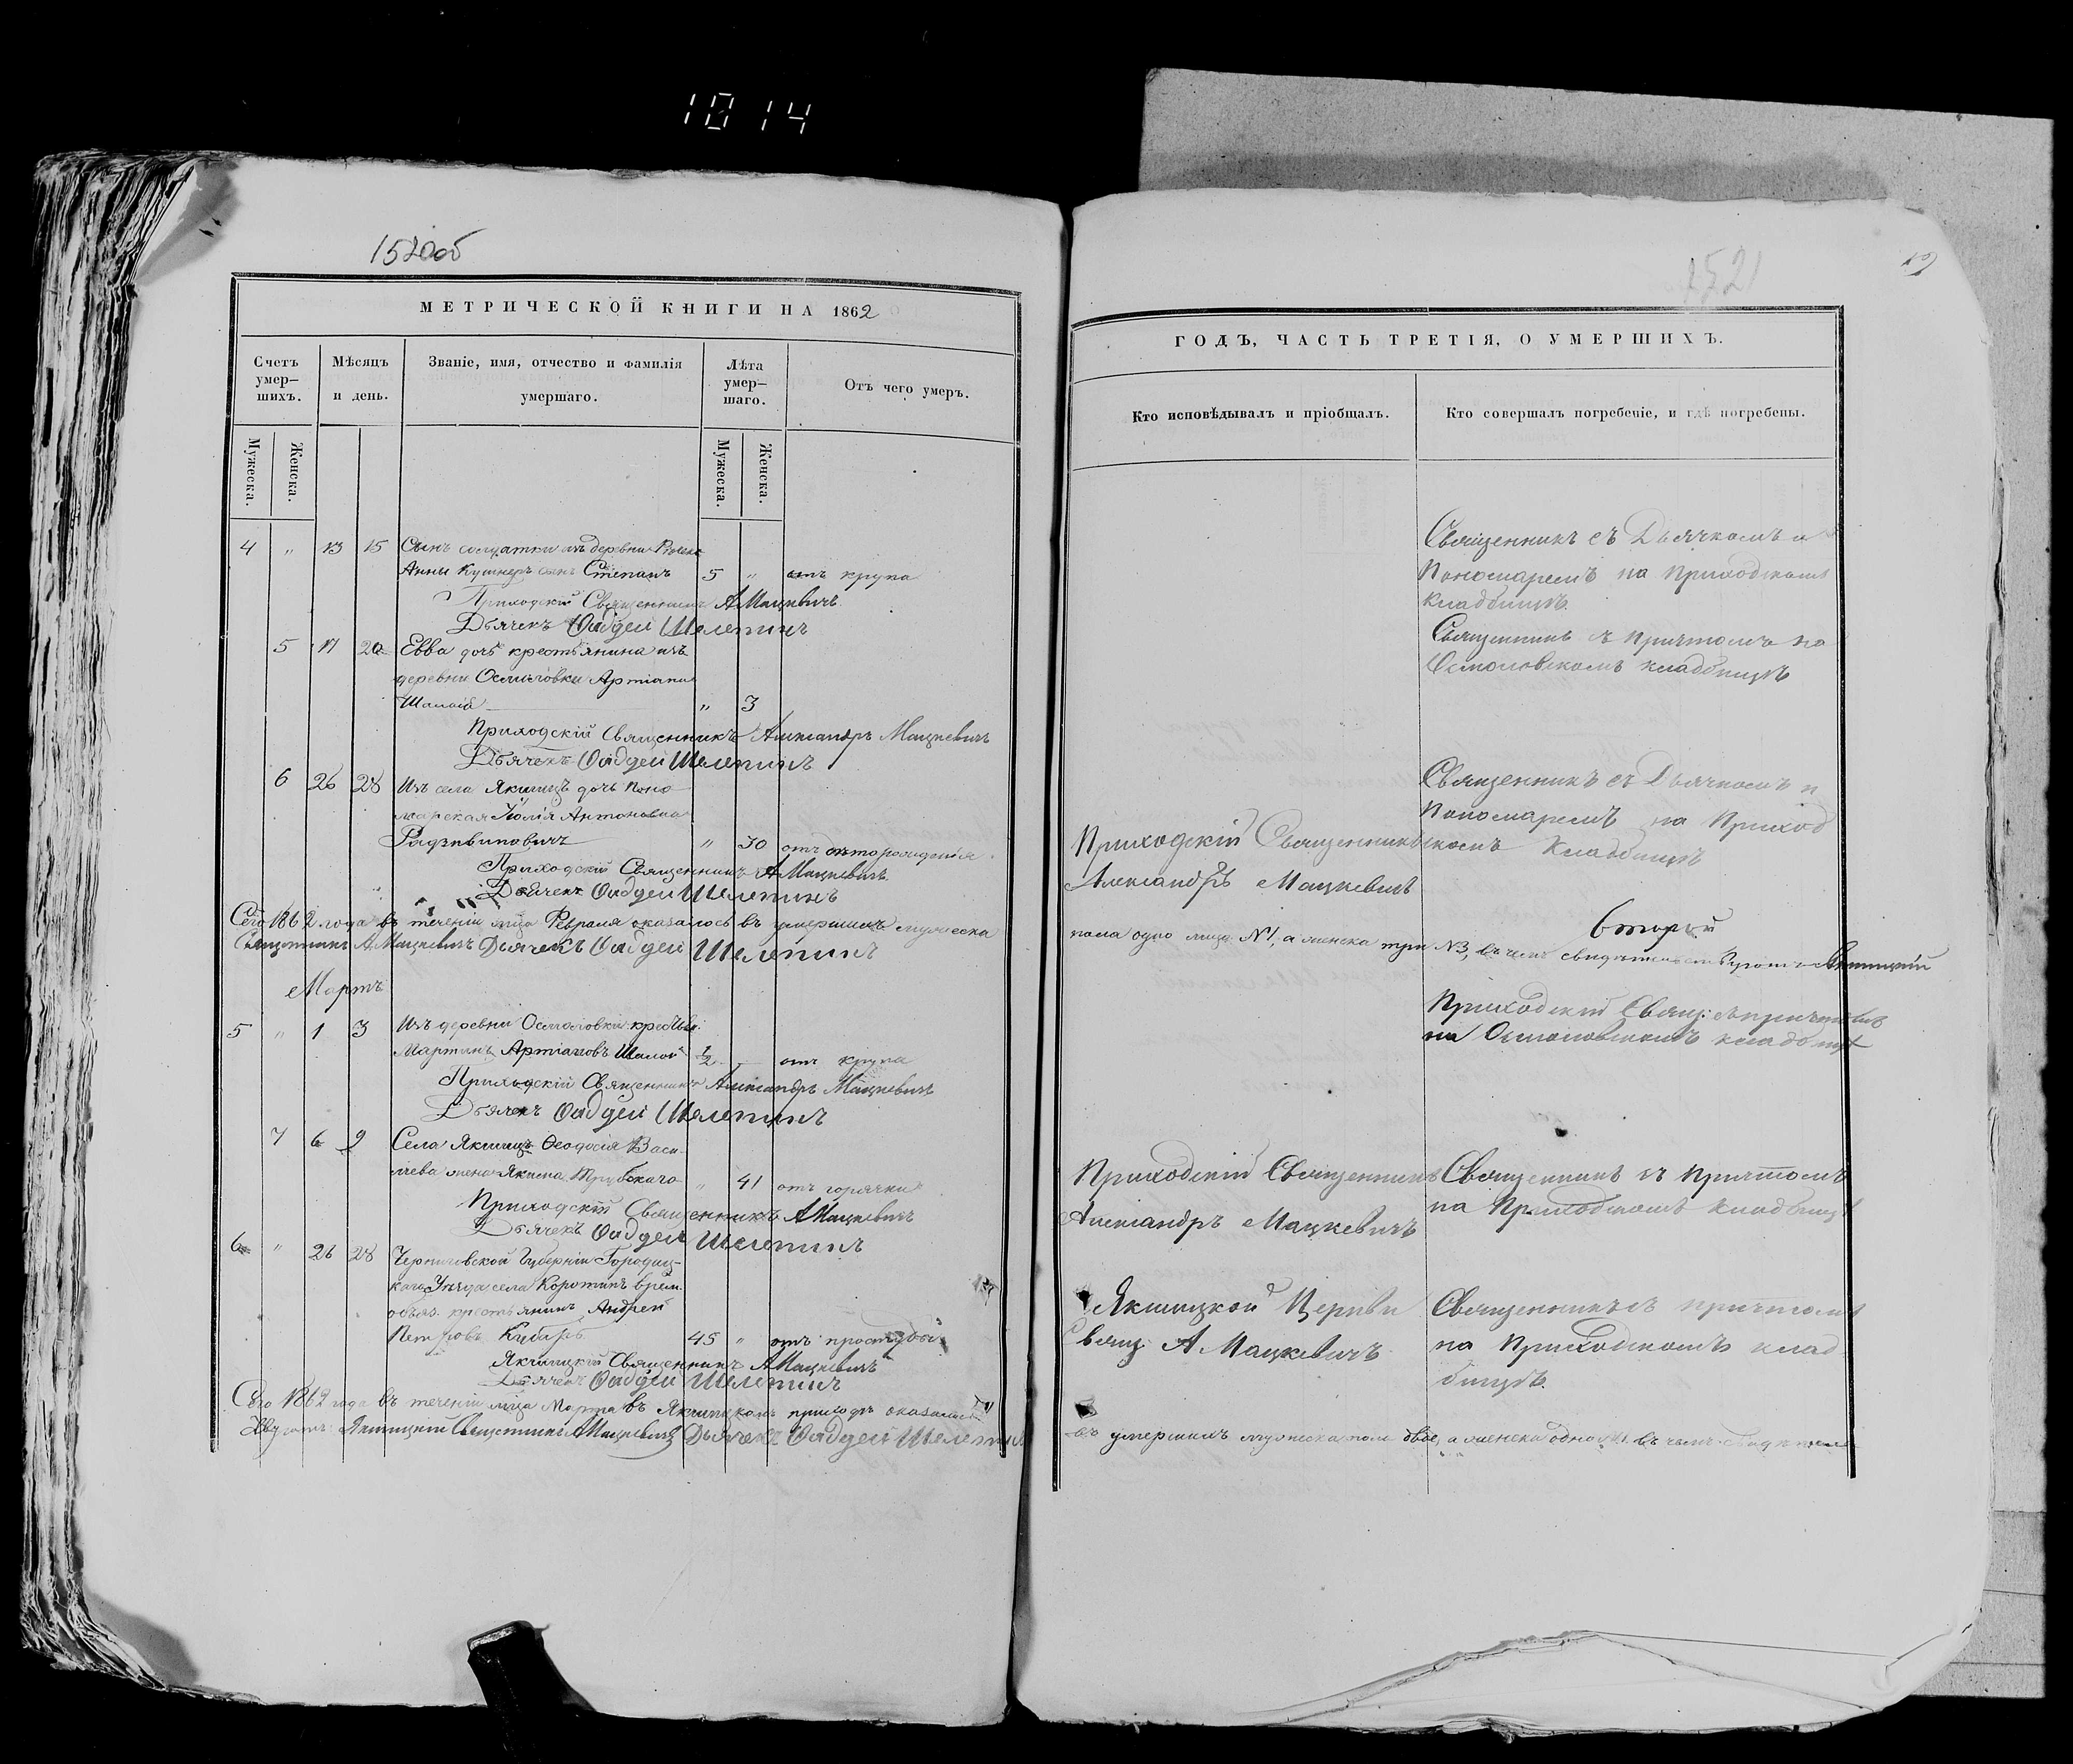 1014
1520об
МЕТРИЧЕСКОЙ КНИГИ НА 1862
Счетъ умер–шихъ.
Мѣсяцъ и день.
Званіе, имя, отчество и фамилія умершаго.
Лѣта умер–шаго.
Отъ чего умеръ.
Мужеска.
Женска.
Мужеска.
Женска.
4 „ 13 15 Сынъ солдатки изъ деревни
Анны Кушнеръ сынъ Степанъ 5 „ отъ крупа
Приходскій Священникъ А Мацкевичъ
Дьячекъ Ѳаддей Шелепинъ
5 17 20 Евва дочь крестьянина изъ
деревни Осмоловки Артіана
Шапой „ 3
Приходскій Священникъ Александръ Мацкевичъ
Дьячекъ Ѳаддей Шелепинъ
6 26 28 Изъ села Якшицъ дочь поно
марская Юлія Антоновна
Радзивиновичъ „ 30 отъ
Приходскій Священникъ А Мацкевичъ
Дьячекъ Ѳаддей Шелепинъ
Сего 1862 года въ теченіи мца Февраля оказалось въ умершихъ мужеска
Священникъ А Мацкевичъ Дьячекъ Ѳаддей Шелепинъ
Мартъ
5 „ 1 3 Изъ деревни Осмоловки
Мартинъ Артіановъ Шапой 1/2 – отъ крупа
Приходскій Священникъ Александръ Мацкевичъ
Дьячекъ Ѳаддей Шелепинъ
7 6 9 Села Якшицъ Ѳеодосія Васи–
лiева жена Якима „ 41 отъ горячки
Приходскій Священникъ А Мацкевичъ
Дьячекъ Ѳаддей Шелепинъ
6 „ 26 28 Черниговской Губерніи Городнц–
каго Уѣзда села врем.
обяз. крестьянинъ Андрей
Петровъ 45 „ отъ простуды
Якшицкій Священникъ А Мацкевичъ
Дьячекъ Ѳаддей Шелепинъ
Сего 1862 года въ теченіи мца Марта въ Якшицкомъ приходѣ оказалось
Якшицкій Священникъ А Мацкевичъ Дьячекъ Ѳаддей Шелепинъ
1521
ГОДЪ, ЧАСТЬ ТРЕТІЯ, О УМЕРШИХЪ.
Кто исповѣдывалъ и пріобщалъ.
Кто совершалъ погребеніе, и гдѣ погребены.
Священникъ съ Дьячкомъ и
Пономаремъ на Приходскомъ
кладбищѣ.
Священникъ съ причтомъ на
Осмоловскомъ кладбищѣ
Священникъ съ Дьячкомъ и
Пономаремъ на Приход
скомъ Кладбищѣ
Приходскій Священникъ
Александръ Мацкевичъ
второй
пола одно лицо №1, а женска три №3, въ чемъ
Приходскій Свящ: съ причтомъ
на Осмоловскомъ кладбищѣ
Приходскій Священникъ
Александръ Мацкевичъ
Священникъ съ Причтомъ
на Приходскомъ кладбищѣ
Якшицкой Церкви
Свящ: А Мацкевичъ
Священникъ съ причтомъ
на Приходскомъ клад
бищѣ.
въ умершихъ мужеска пола двое, а женска одно №1. въ чемъ